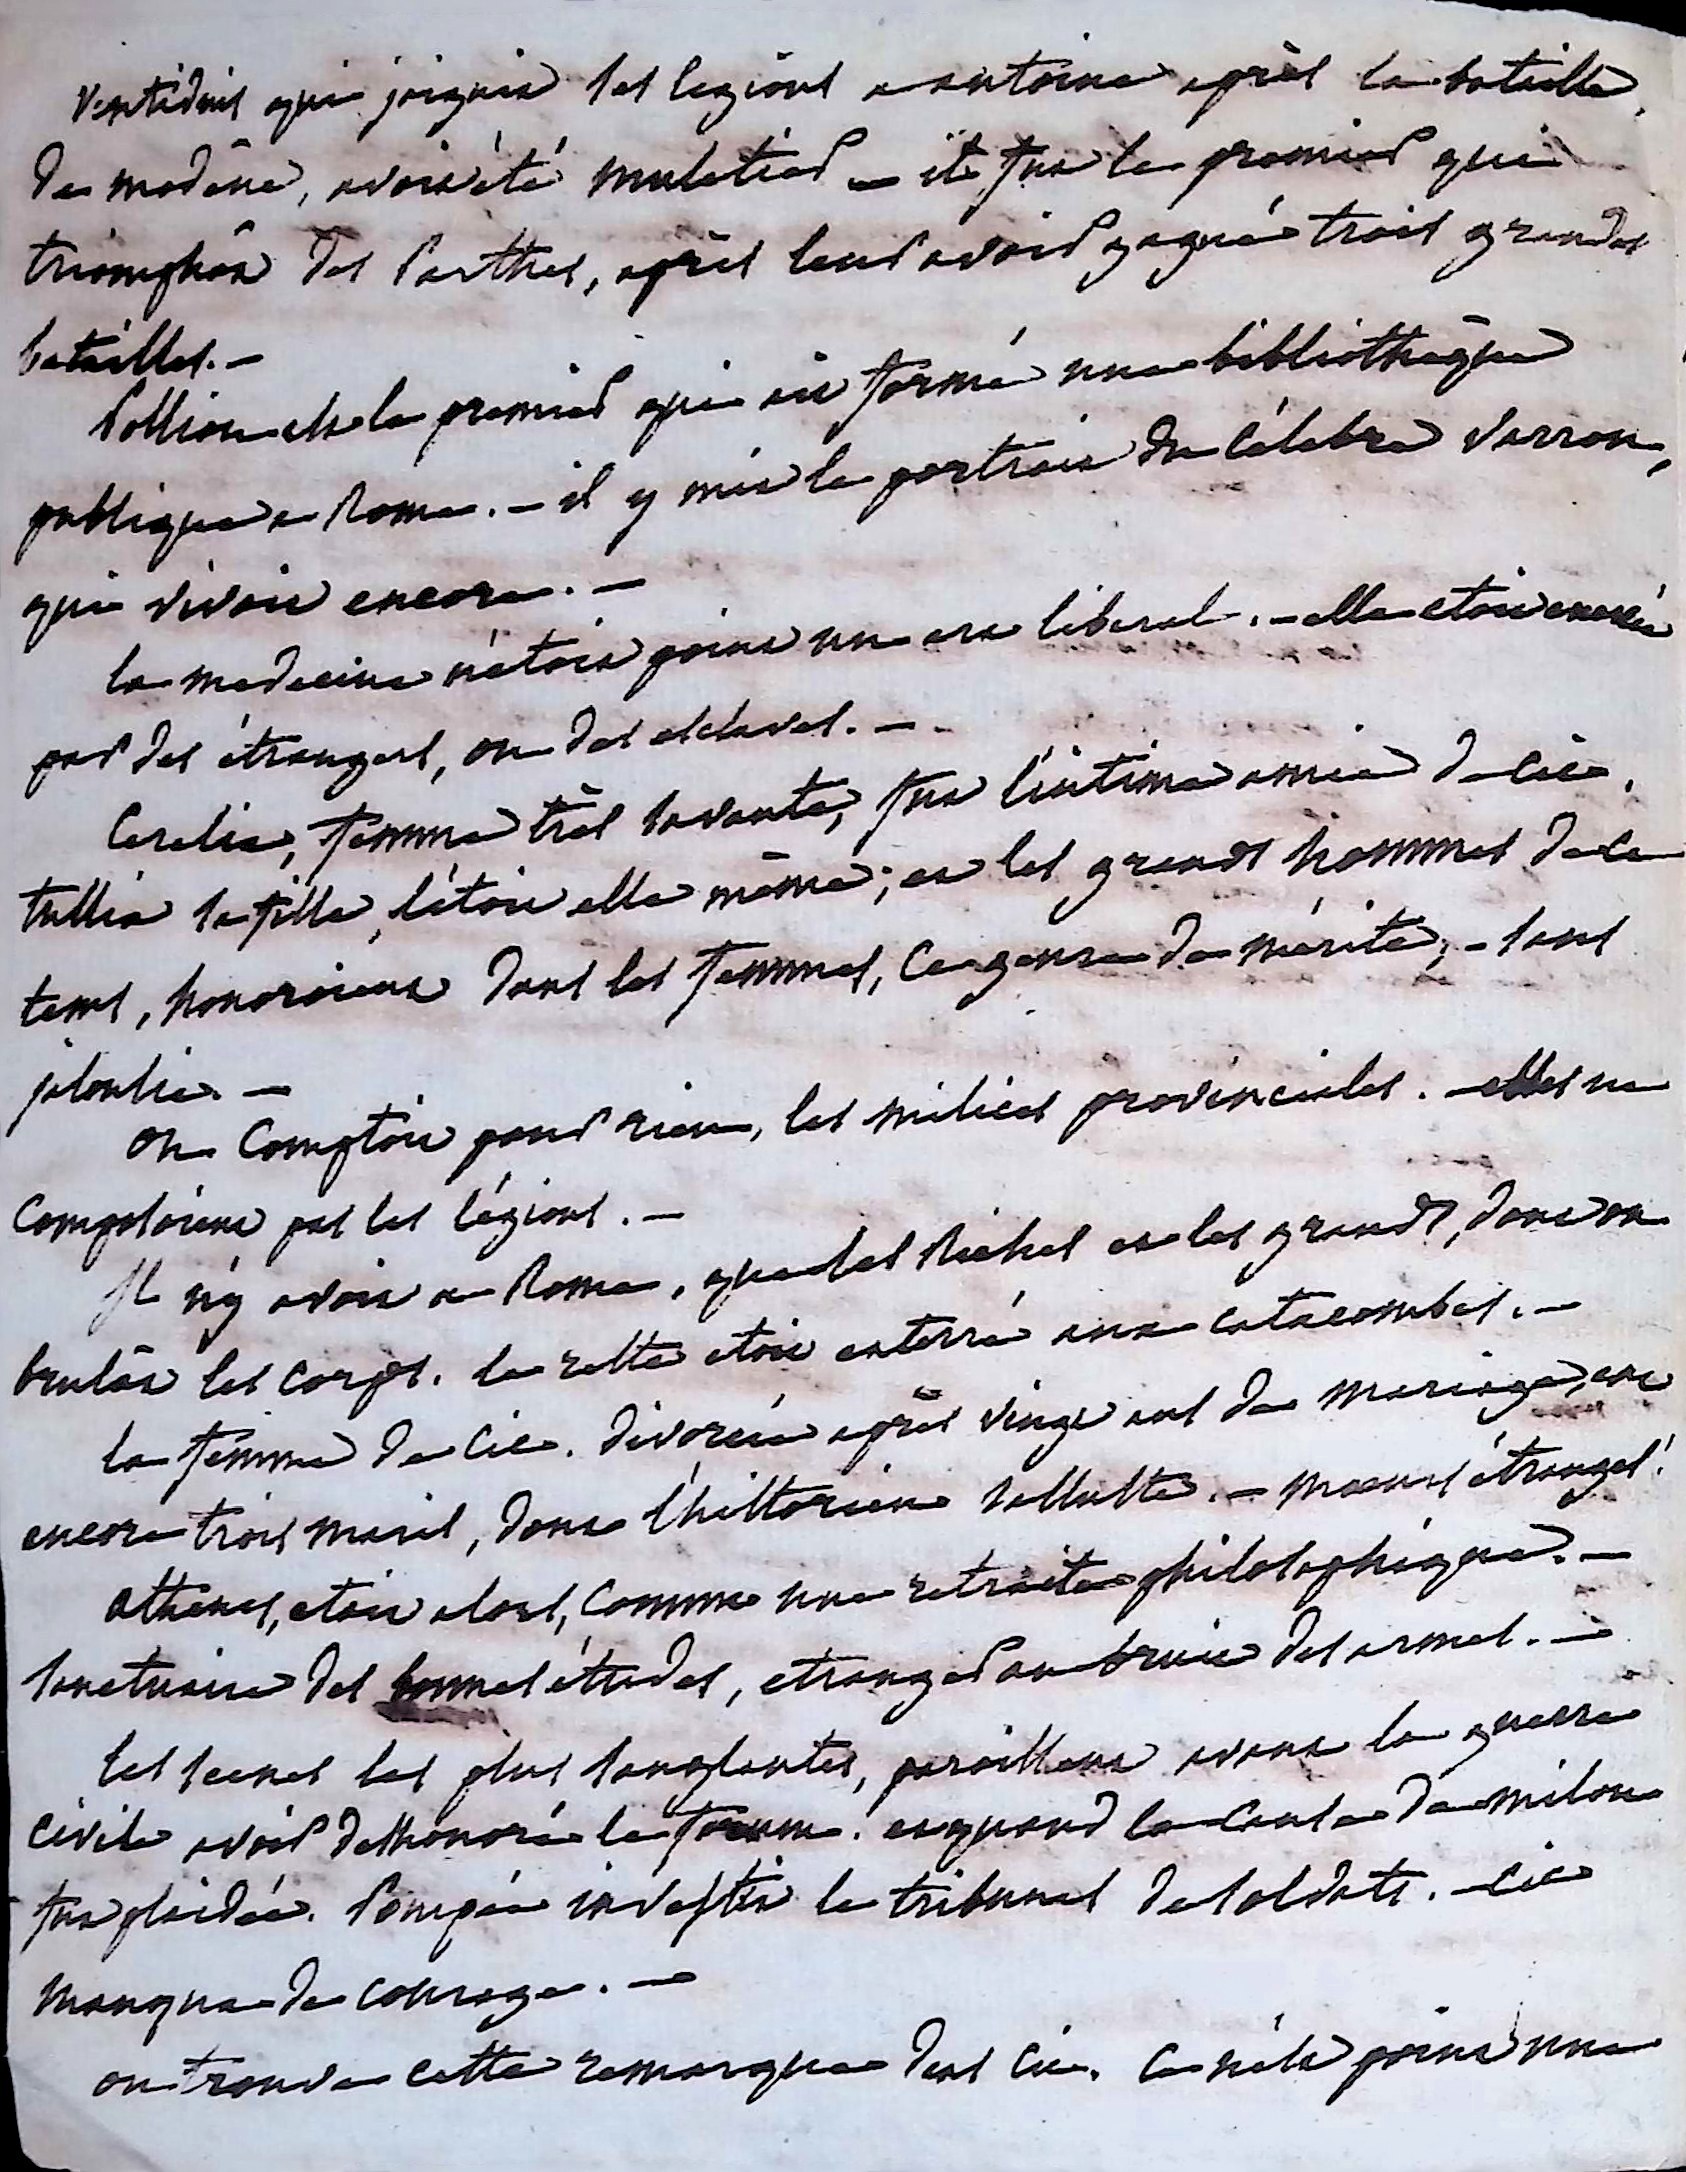 Ventidius qui joignit ses legions a antoine après la bataille
de modêne, avoit été muletier – il fut le premier qui
triomphât des Parthes, après leur avoir gagné trois grandes
batailles. –
Pollion est le premier qui ait formé une bibliothêque
publique a Rome. – il y mit le portrait du célebre Varron,
qui vivoit encore. –
la medecine n'étoit point un art liberal. – elle etoit exercée
par des étrangers, ou des esclaves. –
Cerelia, femme très savante, fut l'intime amie de Cic.
tullia sa fille, l'étoit elle même; et les grands hommes de ce
tems, honoroient dans les femmes, ce genre de mérite; – sans
jalousie. –
On comptoit pour rien, les milices provinciales. – elles ne
composoient pas les légions. –
Il n'y avoit a Rome, que les Riches et les grands, dont on
brulât les corps. le reste etoit enterré aux catacombes. –
la femme de Cic. divorcée après vingt ans de mariage, eut
encore trois maris, dont l'historien Salluste. – moeurs étranges!
athênes, etoit alors, comme une retraite philosophique. –
Sanctuaire des bonnes études, etranger au bruit des armes. –
les scenes les plus sanglantes, paroissent avant la guerre
civile avoir deshonoré le forum. et quand la cause de milon
fut plaidée. Pompée investit le tribunal de soldats. – Cic
manqua de courage. –
on trouve cette remarque dans Cic. Ce n'est point une